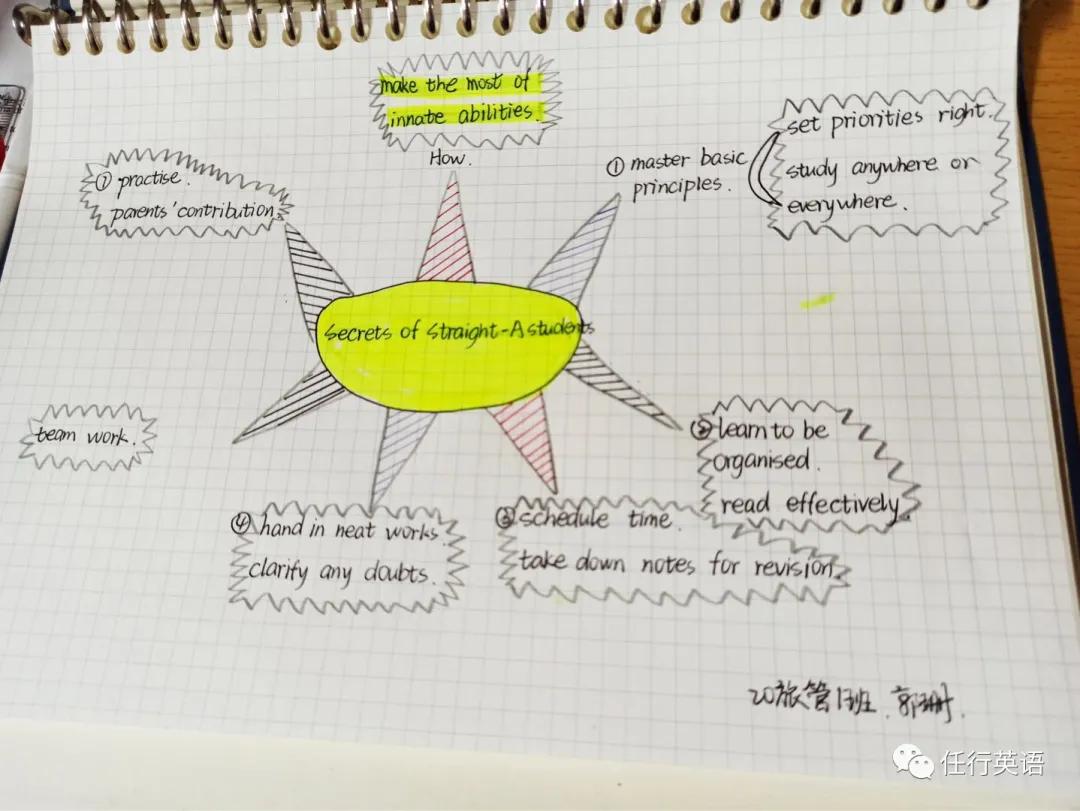 make the most of
innate abilities.
How.
① practise.
parents' contribution.
① master basic
principles.
set priorities right.
study anywhere or
everywhere.
Secrets of Straight-A students
team work.
② learn to be
organised.
read effectively.
④ hand in neat works.
clarify any doubts.
③ schedule time.
take down notes for revision.
20旅管1班 郭珊.
任行英语